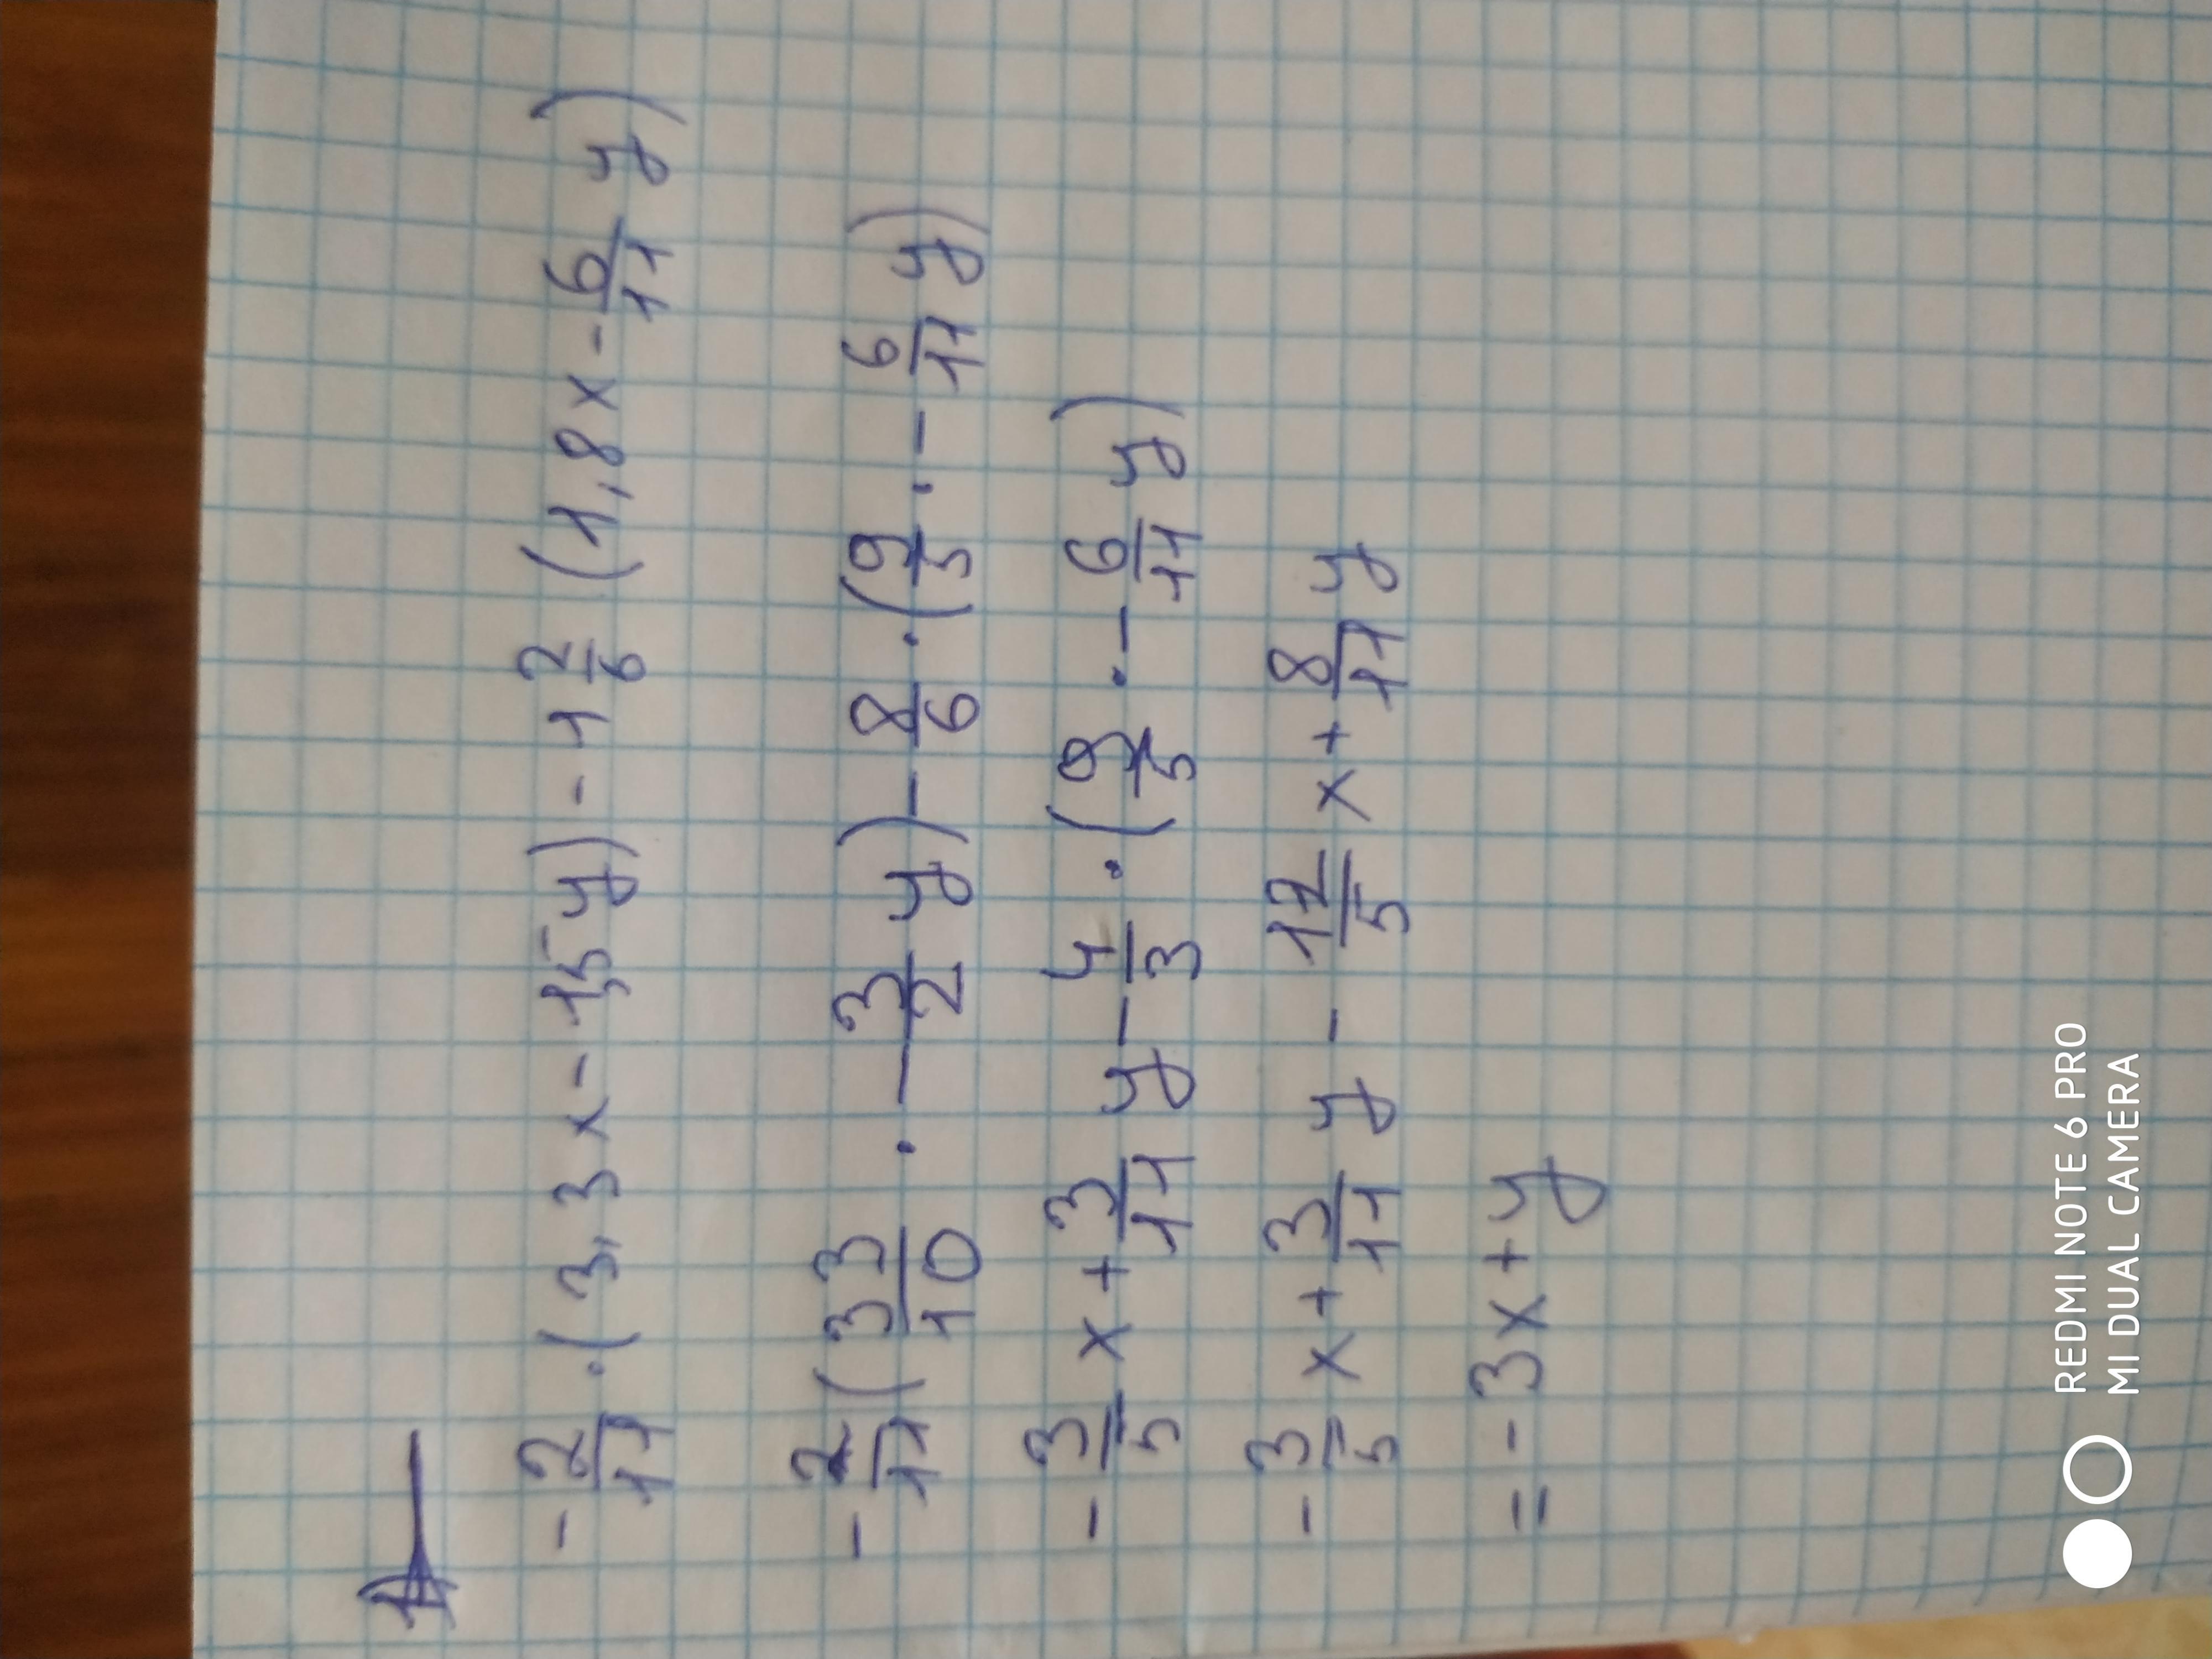 -2/11·(3,3x-1,5y)-1 2/6 (1,8x-6/11 y)
-2/11(33/10 · -3/2 y)-8/6·(9/5 · -6/11 y)
-3/5 x+3/11 y-4/3·(9/5 · -6/11 y)
-3/5 x+3/11 y-12/5 x+8/11 y
=-3x+y
REDMI NOTE 6 PRO
MI DUAL CAMERA